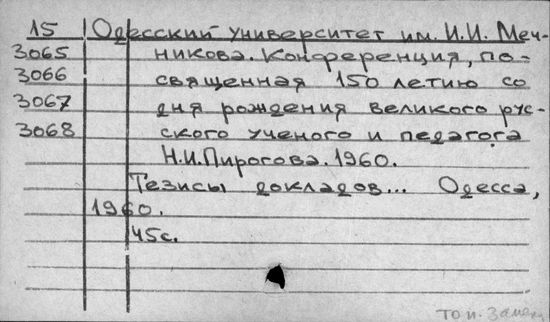 15 Одесский университет им. И.И. Меч-
3065 никова. Конференция, по-
3066 священная 150 летию со
3067 дня рождения великого рус-
3068 ского ученого и педагога
Н.И. Пирогова. 1960.
Тезисы докладов... Одесса,
1960.
45с.
то и.